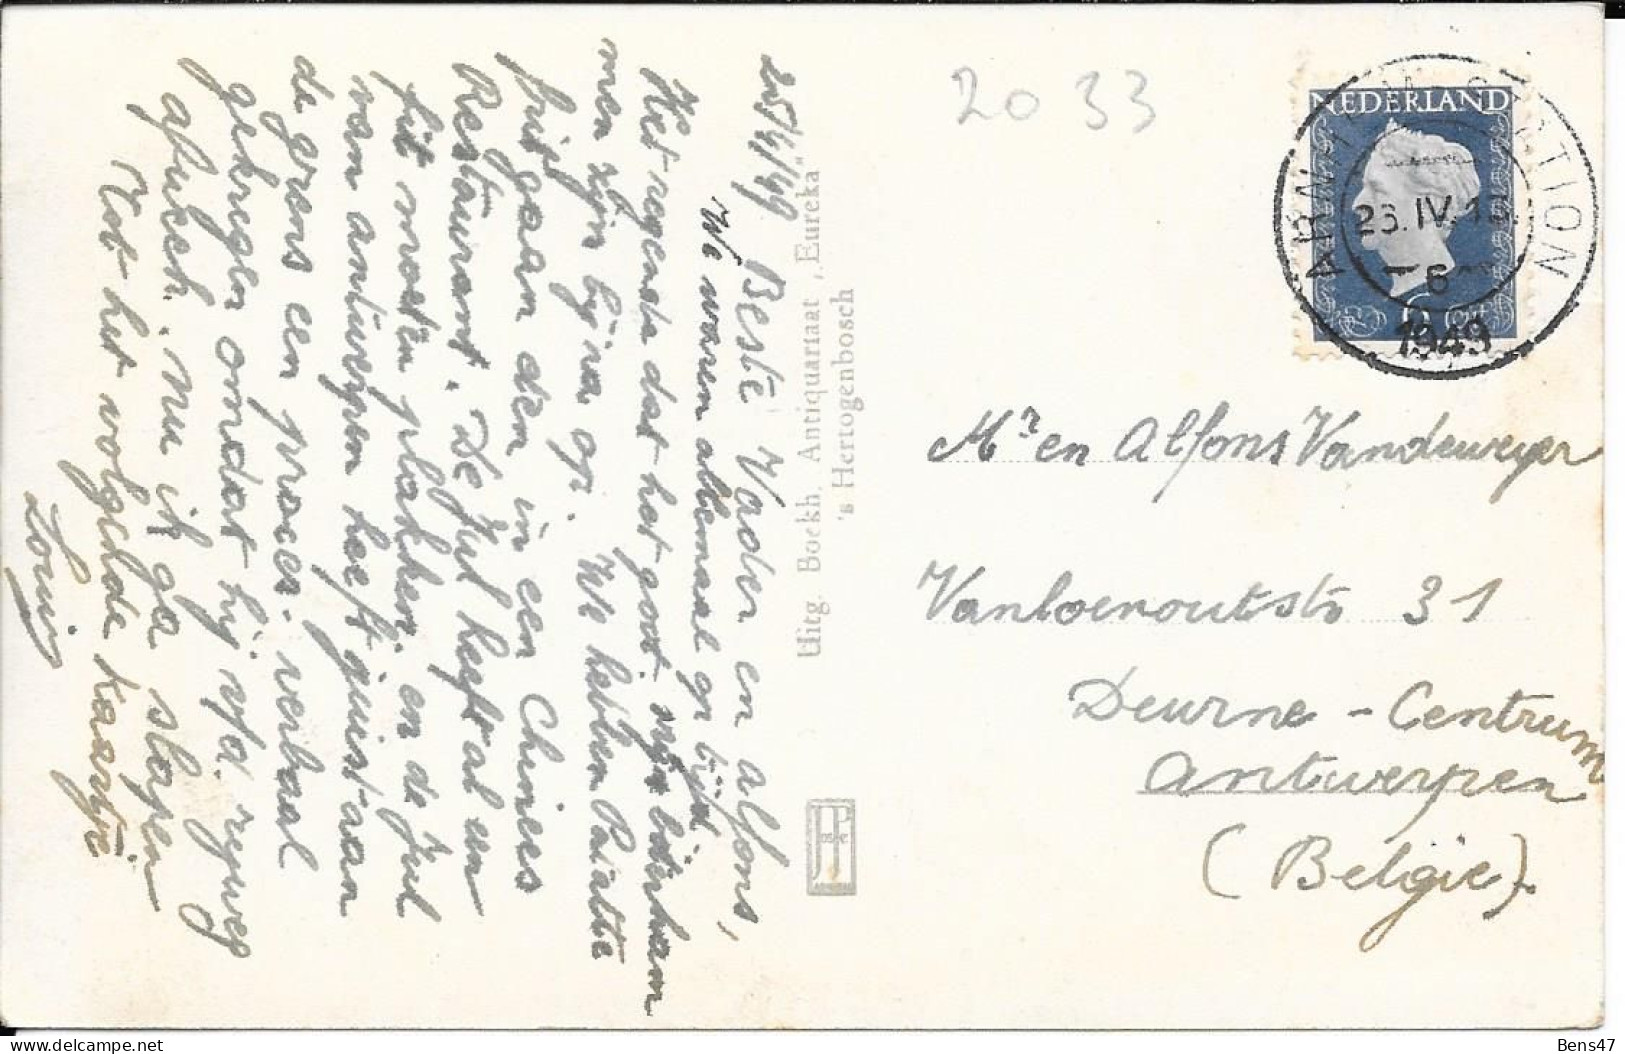 25/4/49 Beste Vader en alfons,
We waren allemaal op tijd
Het regende dat het goot.
men zijn bijna op. We hebben
frit gaan eten in een Chinees
Restaurant. De Jul heeft al een
fit moeten plakken, en de Jul
van antwerpen heeft juist aan
de grens een proces-verbaal
gekregen omdat hij v/d rijweg
afweek. Nu ik ga slapen
Tot het volgende kaartje
Louis
Uitg. Boekh. Antiquariaat „Eureka"
's Hertogenbosch
JP
2033
NEDERLAND
ARNHEM STATION
26.IV.1
6
1949
CENT
Mr en Alfons Vandeweyer
31
Deurne - Centrum
Antwerpen
(Belgie).
Bens47